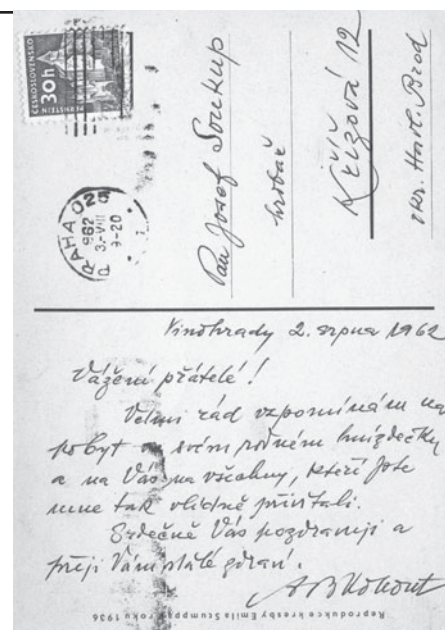 ČESKOSLOVENSKO
30h
PERNŠTEJN
PRAHA 025
3.-VIII 962
9-20
Pan Josef Soukup
hrobař
Křížová 12
okr. Havl. Brod
Vinohrady 2. srpna 1962
Vážení přátelé!
Velmi rád vzpomínám na
pobyt ve svém rodném hnízdečku
a na Vás na všechny, kteří jste
mne tak vlídně přivítali.
Srdečně Vás pozdravuji a
přeji Vám stálé zdraví.
AB Kohout
Reprodukce kresby Emila Stumppa z roku 1936